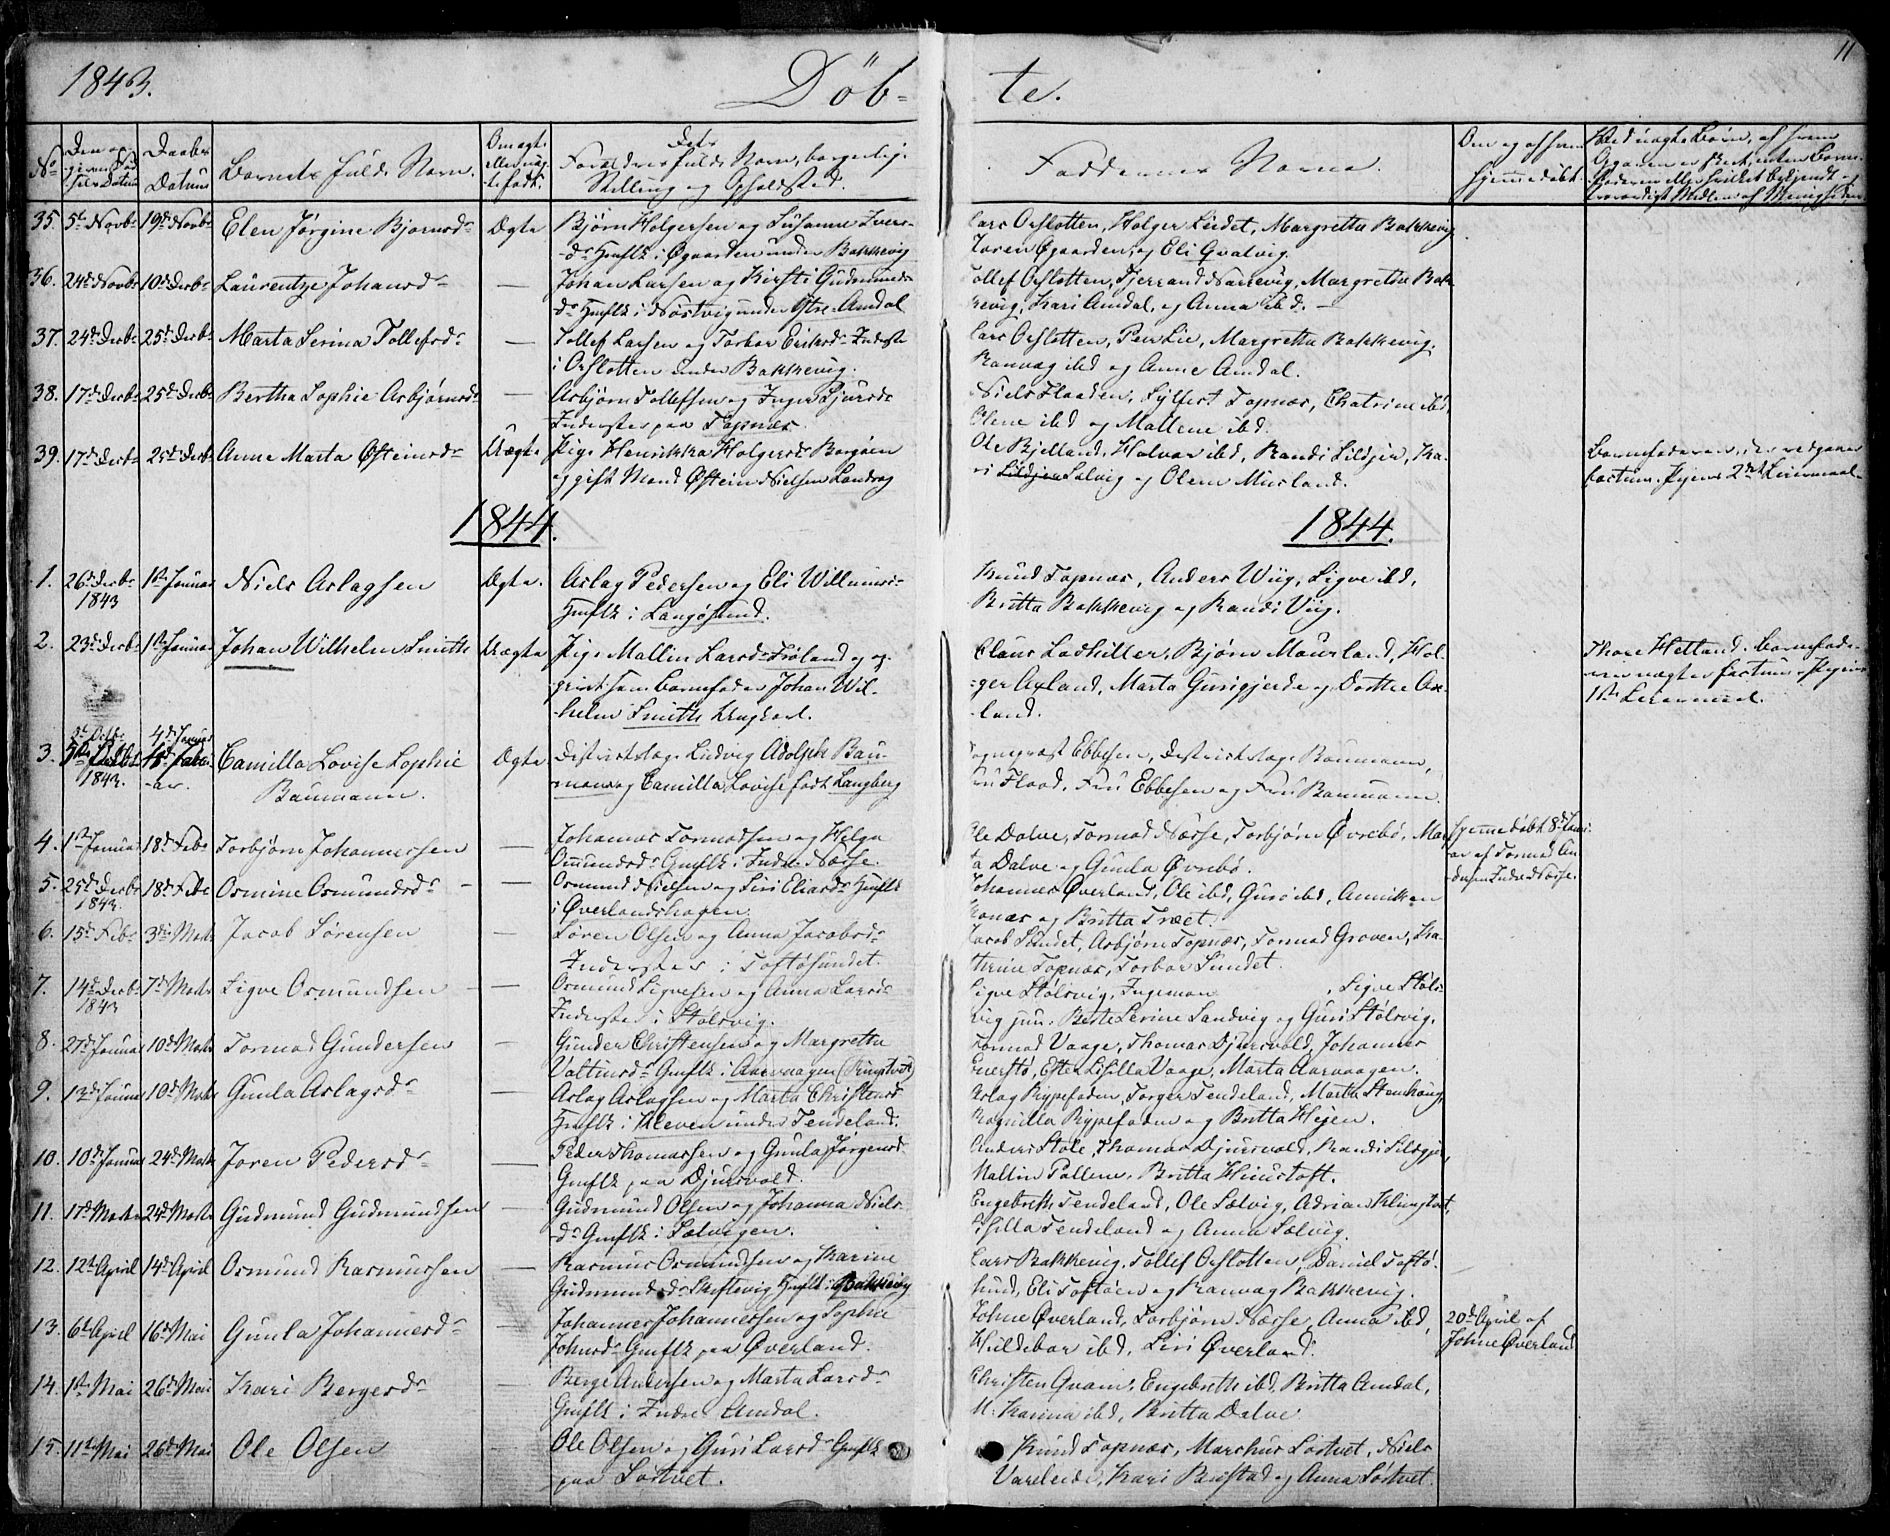 1843.
Döb-
te.
11
No
Daabs Datum
Barnets fulde Navn.
Foraldres fulde Navn, borgerlig.
Stilling og Opholdsted.
Faddernes Navne.
35. 5te Novbr 19de Novbr Elen Jørgine Bjørnsdr Ægte Bjørn Holgersen og Susanne Ivers-
dr Gmflk i Øgaarden under Bakkevig
Lars Arslotten, Holger Lindet, Margretta Bakkevig
Joren Øgaarden, og Eli Qvalvig.
36. 24de Novbr 10de Decbr Laurentze Johansdr — Johan Larsen og Kirsti Gudmunds
dr Gmflk i Nostvig under Østre Amdal
Tollef Arslotten, Margretha Bak-
kevig, Kari Amdal, og Anna ibd. —
37. 24de Decbr 25de Decbr Marta Serina Tollefsdr — Tollef Larsen og Torbor Eriksdr Inderste
i Arslotten under Bakkevig.
Lars Arslotten, Peer Lie, Margretta Bakkevig,
Ranvag ibd og Anne Amdal.
38. 17de Decbr 25de Decbr Bertha Sophie Asbjørnsdr — Asbjørn Tollefsen og Inger
Inderster paa Topnæs.
Niels Flaaden, Sylfest Topnæs, Chatrine ibd,
Olene ibd og Mallene ibd.
39. 17de Decbr 25de Decbr Anne Marta Østeinsdr Uægte Pige Henrikka Holgersdr Borgøen
og gift Mand Østein Nielsen Landrag
Ole Bjelland, Halvor ibd, Randi Lildjer, Ka-
ri Lildjer Salvig og Olene Musland.
Barnefaderen, der vedgaaer
factum. Pigens 2det Leiermaal.
1844.
1844.
1. 26de Decbr 1ste Januar Niels Aslagsen Ægte. Aslag Pedersen og Eli Willumsdr
1843
Gmflk i Langøsund.
Knud Topnæs, Anders Wiig, Sigve ibd,
Britta Bakkevig og Randi Viig.
2. 23de Decbr 1ste Januar Johan Wilhelm Smith Uægte Pige Mallin Larsdr Frøland og op-
givet som Barnefader Johan Wil-
helm Smith Ungkarl.
Claus Ladhiller, Bjørn Mousland, Hol-
ger Axland, Marta Gunsgjerde og Dorthe Ax-
land.
Thore Hetland. Barnefade-
ren nægter factum. Pigens
1ste Leiermaal.
5te Octbr 4de Januar
3. Camilla Lovise Sophie Ægte Districtslæge Ludvig Adolph Bau-
1843.
Baumann.
mann og Camilla Lovise født Langberg
Sognepræst Ebbesen, Districtslæge Baumann,
Fru Flood, Fru Ebbesen og Fru Baumann.
4. 1ste Januar 18de Febr Torbjørn Johannessen — Johannes Tormodsen og Helga
Osmundsdr Gmflk i Indre Næsse.
Ole Dalve, Tormod Næsse, Torbjørn Øvrebø, Mar-
ta Dalve og Gunla Øvrebø.
Hjemmedøbt 8de Janu-
ar af Tormod An-
dersen Indre Næsse.
5. 25de Decbr 18de Febr Osmine Osmundsdr — Osmund Nielsen og Siri Eliasdr Gmflk
1843.
i Øverlandshagen.
Johannes Øverland, Ole ibd, Guro ibd, Anniken
og Britta Træet.
6. 15de Febr 3die Marts Jacob Sørensen — Søren Olsen og Anna Jacobsdr
Inderster i Toftøsundet.
Jacob Sundet, Asbjørn Topnæs, Tormod Groven, Ka-
thrine Topnæs, Torbor Sundet.
7. 14de Decbr 7de Marts Sigve Osmundsen — Osmund Sigvesen og Anna Larsdr
1843
Inderster i Stølsvig.
Sigve Stølsvig, Ingeman , Sigve Støls-
vig jun. Berte Serine Sandvig og Guri Stølsvig.
8. 27de Januar 10de Marts Tormod Gundersen — Gunder Christensen og Margretta
Valtinsdr Gmflk i Aarvaagen
Tormod Vaage, Thomas Djursvold, Johannes
Sisilla Vaage, Marta Aarvaagen.
9. 13de Januar 10de Marts Gunla Aslagsdr — Aslag Aslagsen og Marta Christensdr
Gmflk i Kleven under Tendeland.
Aslag Rypefaden, Torger Tendeland, Marta Stenhoug,
Ragnilla Rypefaden og Britta Hejen.
10. 10de Januar 24de Marts Joren Pedersdr — Peder Thomassen og Gunla Jørgensdr
Gmflk paa Djursvold.
Anders Stole, Thomas Djursvold, Randi
Mallin Pollen, Britta Hinustoft.
11. 17de Marts 24de Marts Gudmund Gudmundsen — Gudmund Olsen og Johanna Niels-
dr Gmflk i Salvigen.
Engebreth Tendeland, Ole Salvig, Adrian
Sisilla Tendeland og Anna Salvig.
12. 12te April 14de April Osmund Rasmussen — Rasmus Osmundsen og Karine
Gudmundsdr Skeftevig Gmflk i Bakkevig
Lars Bakkevig, Tollef Arslotten, Daniel Toftø-
sund, Eli Toftøen og Ranvag Bakkevig.
13. 6te April 16de Mai Gunla Johannesdr — Johannes Johannessen og Sophie
Johnsdr Gmflk paa Øverland.
Johne Øverland, Torbjørn Næsse, Anna ibd,
Huldebor ibd, Siri Øverland.
20de April af
Johne Øverland
14. 1ste Mai 26de Mai Kari Bergesdr — Berge Andersen og Marta Larsdr
Gmflk i Indre Amdal.
Christen Qvam, Engebreth ibd, Britta Amdal,
M. Karina ibd, Britta Dalve
15. 11te Mai 26de Mai Ole Olsen — Ole Olsen og Guri Larsdr Gmflk
paa Løstvet.
Knud Topnæs, Marthus Løstvet, Niels
Varleid, Kari og Anna Løstvet.